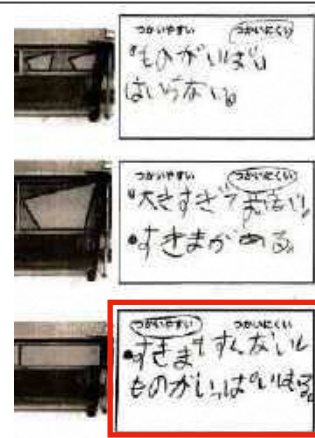 つかいやすい つかいにくい
・ものがいぱい
はいらない。
つかいやすい つかいにくい
・大きすぎて
・すきまがある。
つかいやすい つかいにくい
・すきまもすくないし
ものがいっぱいはいる。